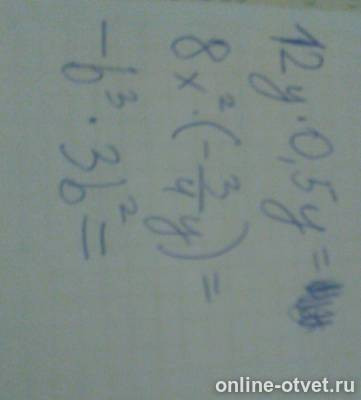 12y·0,5y=
8x²·(-3/4y)=
-b³·3b²=
online-otvet.ru